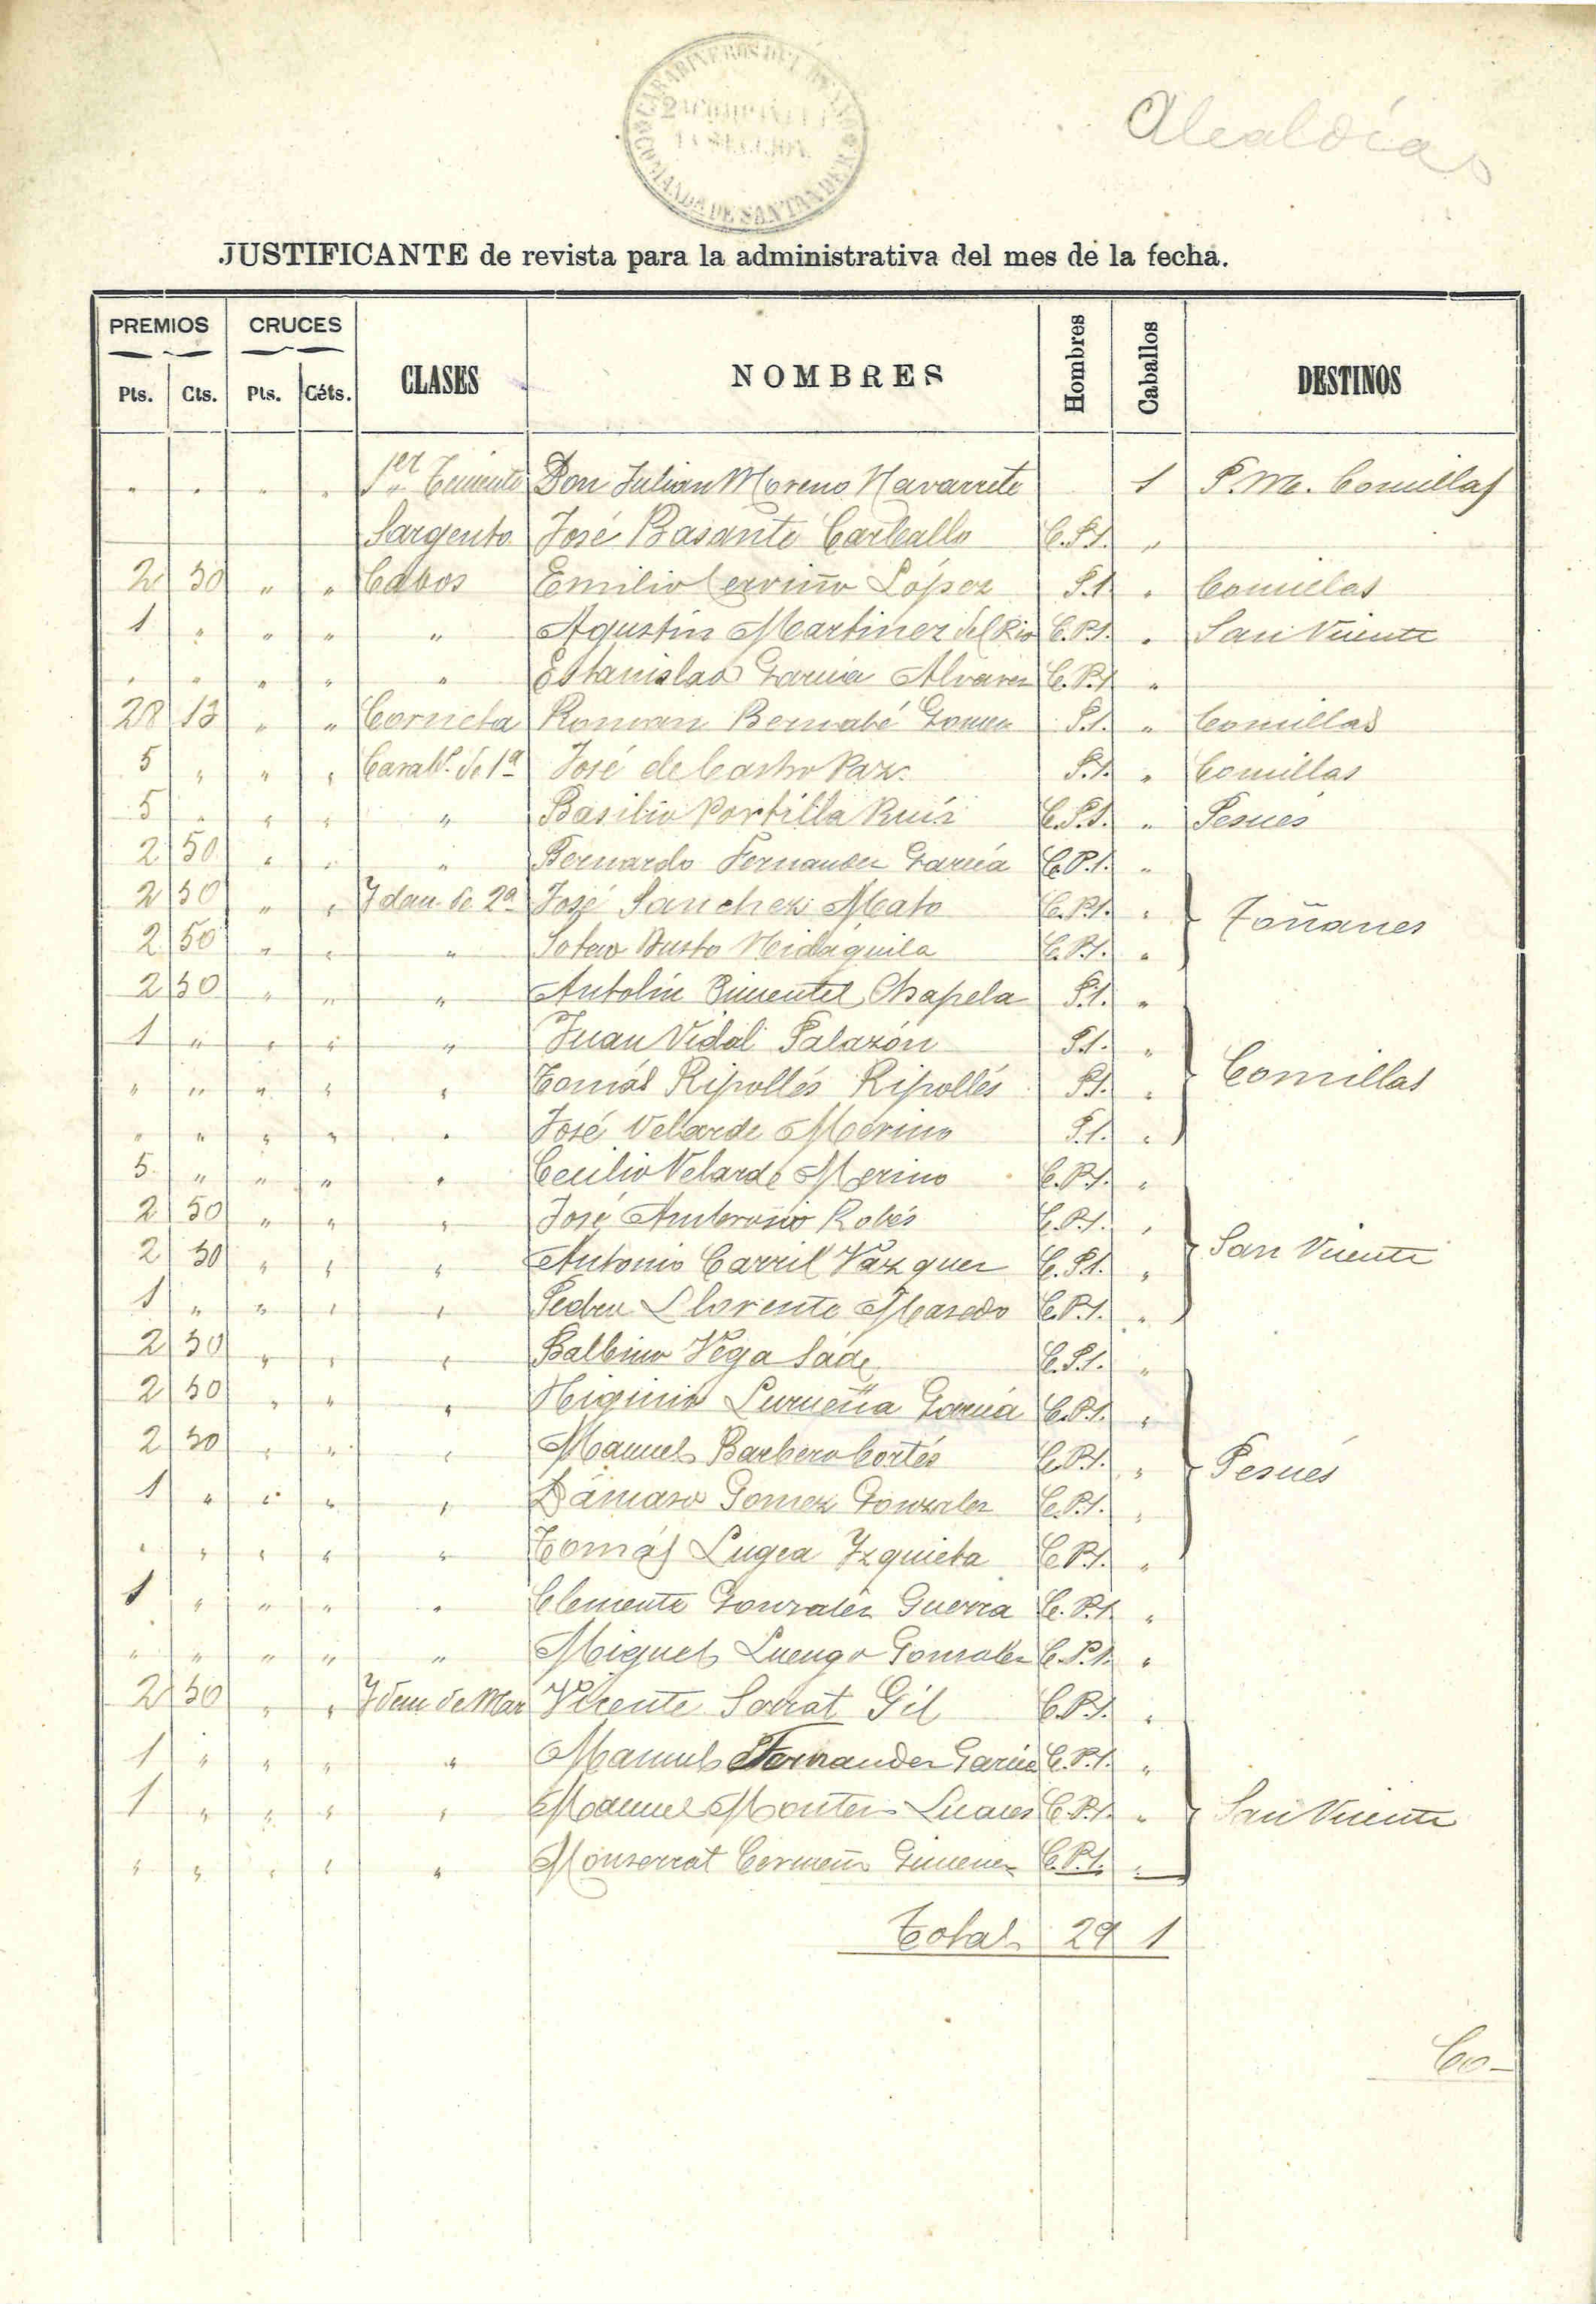 CARABINEROS DEL REINO
2ª COMPAÑIA
1ª SECCION
COMANDA DE SANTANDER
Alcaldía
JUSTIFICANTE de revista para la administrativa del mes de la fecha.
PREMIOS CRUCES CLASES NOMBRES Hombres Caballos DESTINOS
Pts. Cts. Pts. Céts.
" " " " 1er Teniente Don Julian Moreno Navarrete 1 P.M. Comillas
Sargento José Basante Carballo C.P.1. "
2 50 " " Cabos Emilio Cerviño López P.1. " Comillas
1 " " " " Agustín Martinez del Rio C.P.1. " San Vicente
" " " " " Estanislao Garcia Alvarez C.P.1. "
28 13 " " Corneta Roman Bernabé Gomez P.1. " Comillas
5 " " " Carabº. de 1ª José de Castro Paz. P.1. " Comillas
5 " " " " Basilio Portilla Ruíz C.P.1. " Pesués
2 50 " " " Bernardo Fernandez García C.P.1. "
2 50 " " Ydem de 2ª José Sanchez Mato C.P.1. " Toñanes
2 50 " " " Sotero Busto Hidaguila C.P.1. "
2 50 " " " Antolín Pimentel Chapela P.1. "
1 " " " " Juan Vidal Palazón P.1. "
" " " " " Tomás Ripollés Ripollés P.1. " Comillas
" " " " " José Velarde Merino P.1. "
5 " " " " Cecilio Velarde Merino C.P.1. "
2 50 " " " José Ambrosio Robés C.P.1. "
2 50 " " " Antonio Carril Vazquez C.P.1. " San Vicente
1 " " " " Pedro Llorente Masedo C.P.1. "
2 50 " " " Balbino Vega Sáde C.P.1. "
2 50 " " " Higinio Lurueña García C.P.1. "
2 50 " " " Manuel Barbero Cortés C.P.1. " Pesués
1 " " " " Dámaso Gomez Gonzalez C.P.1. "
" " " " " Tomás Lugea Yzquieta C.P.1. "
1 " " " " Clemente Gonzalez Guerra C.P.1. "
" " " " " Miguel Luengo Gonzalez C.P.1. "
2 50 " " Ydem de Mar Vicente Sarrat Gil C.P.1. "
1 " " " " Manuel Fernandez García C.P.1. "
1 " " " " Manuel Montes Linares C.P.1. " San Vicente
" " " " " Monserrat Cermeño Gimenez C.P.1. "
Total 29 1
Co-